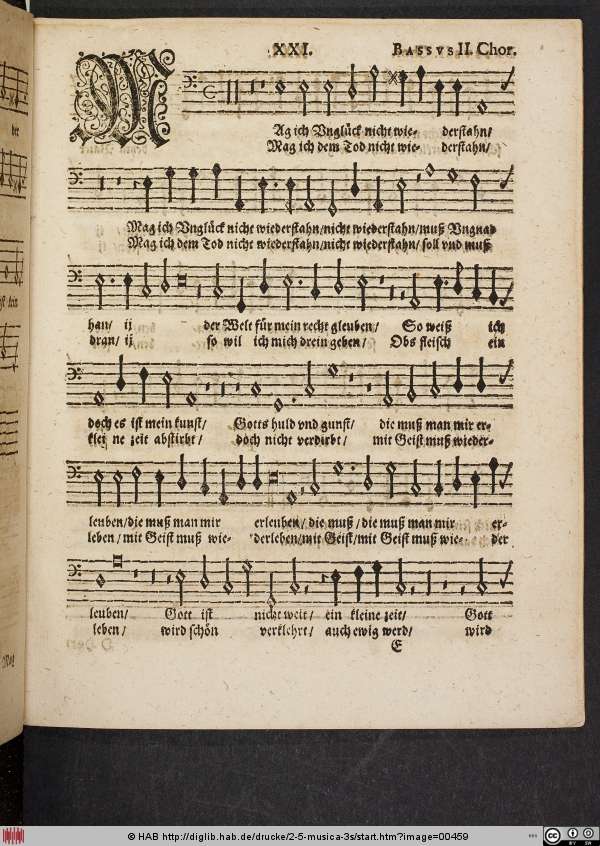 XXI. BASSVS II. Chor.
MAg ich Vnglück nicht wie- derstahn/
Mag ich dem Tod nicht wie- derstahn/
Mag ich Vnglück nicht wiederstahn/nicht wiederstahn/muß Vngnad
Mag ich dem Tod nicht wiederstahn/nicht wiederstahn/soll vnd muß
han/ ij der Welt für mein recht gleuben/ So weiß ich
dran/ ij so wil ich mich drein geben/ Obs fleisch ein
doch es ist mein kunst/ Gotts huld vnd gunst/ die muß man mir er-
klei ne zeit abstirbt/ doch nicht verdirbt/ mit Geist muß wieder-
leuben/die muß man mir erleuben/ die muß/die muß man mir er-
leben/mit Geist muß wie- derleben/mit Geist/mit Geist muß wie- der
leuben/ Gott ist nicht weit/ ein kleine zeit/ Gott
leben/ wird schön verklehrt/ auch ewig werd/ wird
E
der
© HAB http://diglib.hab.de/drucke/2-5-musica-3s/start.htm?image=00459